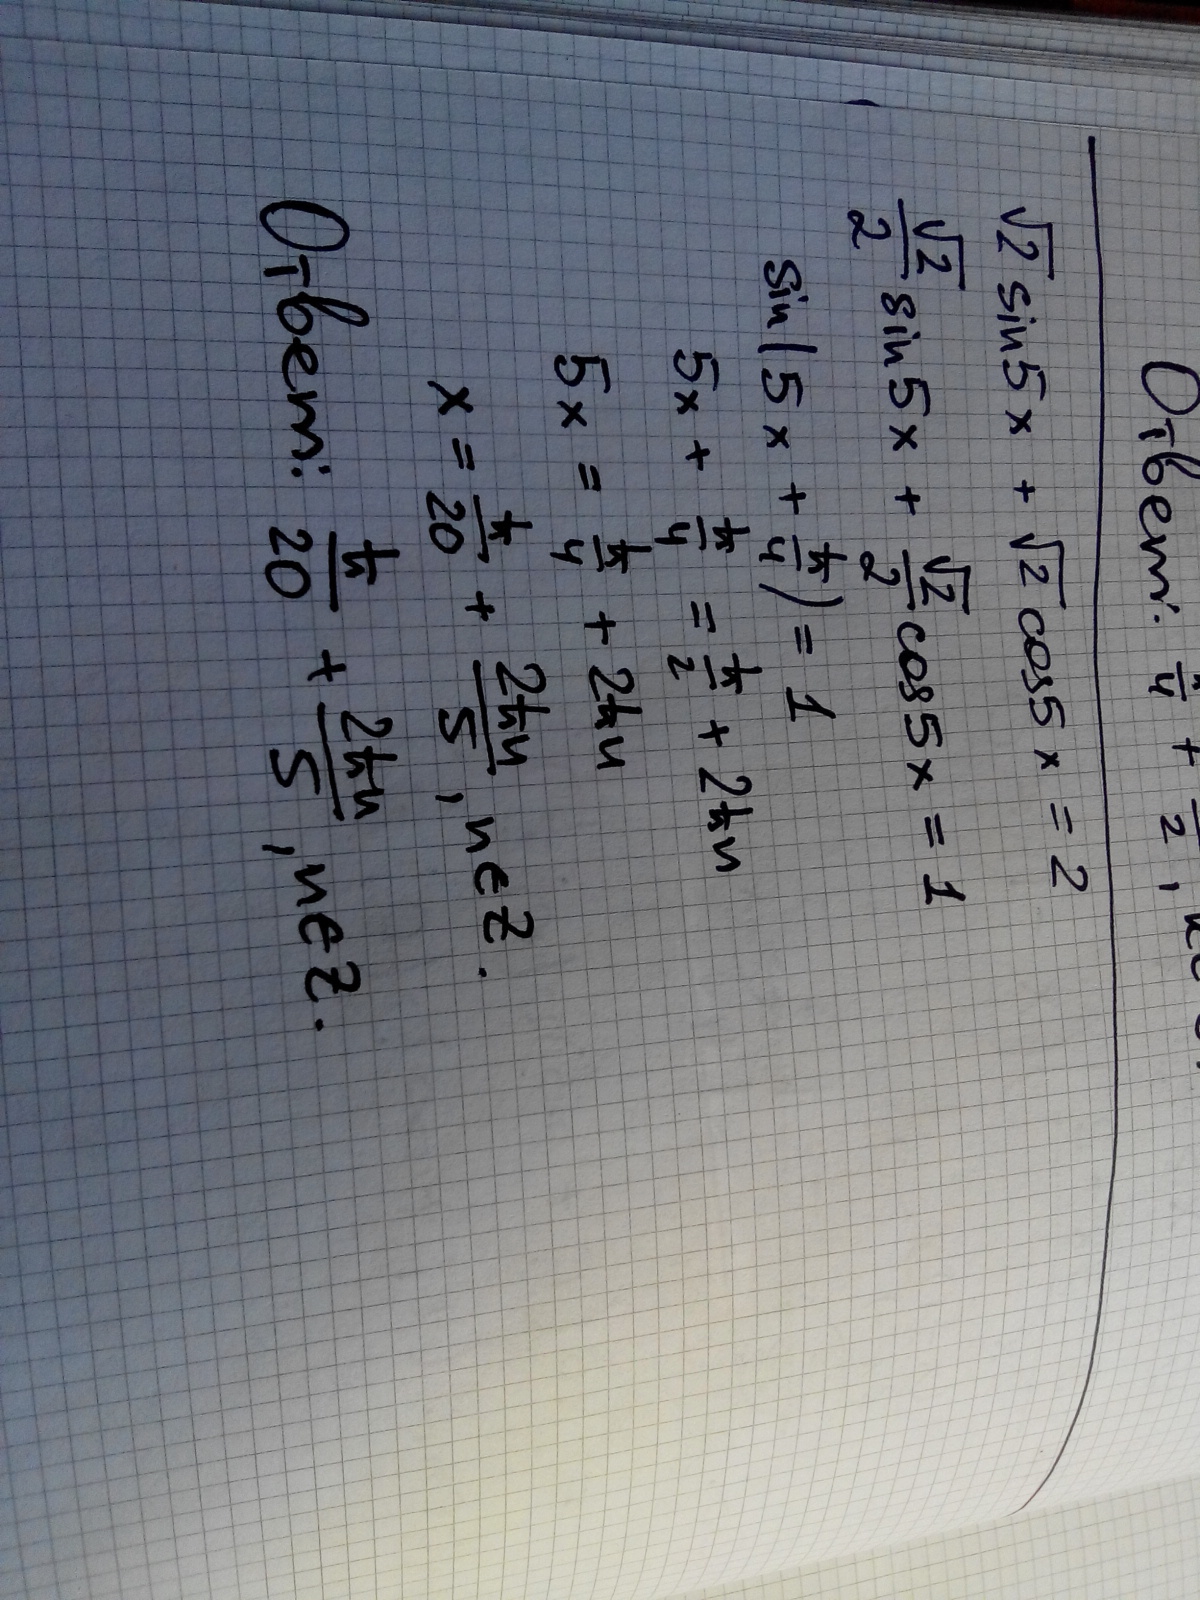 Ответ: π/4 + /2, n∈
√2 sin5x + √2 cos5x = 2
√2/2 sin5x + √2/2 cos5x = 1
sin(5x + π/4) = 1
5x + π/4 = π/2 + 2πn
5x = π/4 + 2πn
x = π/20 + 2πn/5, n∈Z.
Ответ: π/20 + 2πn/5, n∈Z.